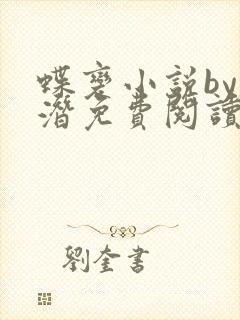 蝶褻小说by
潛免費閱讀
劉奎書